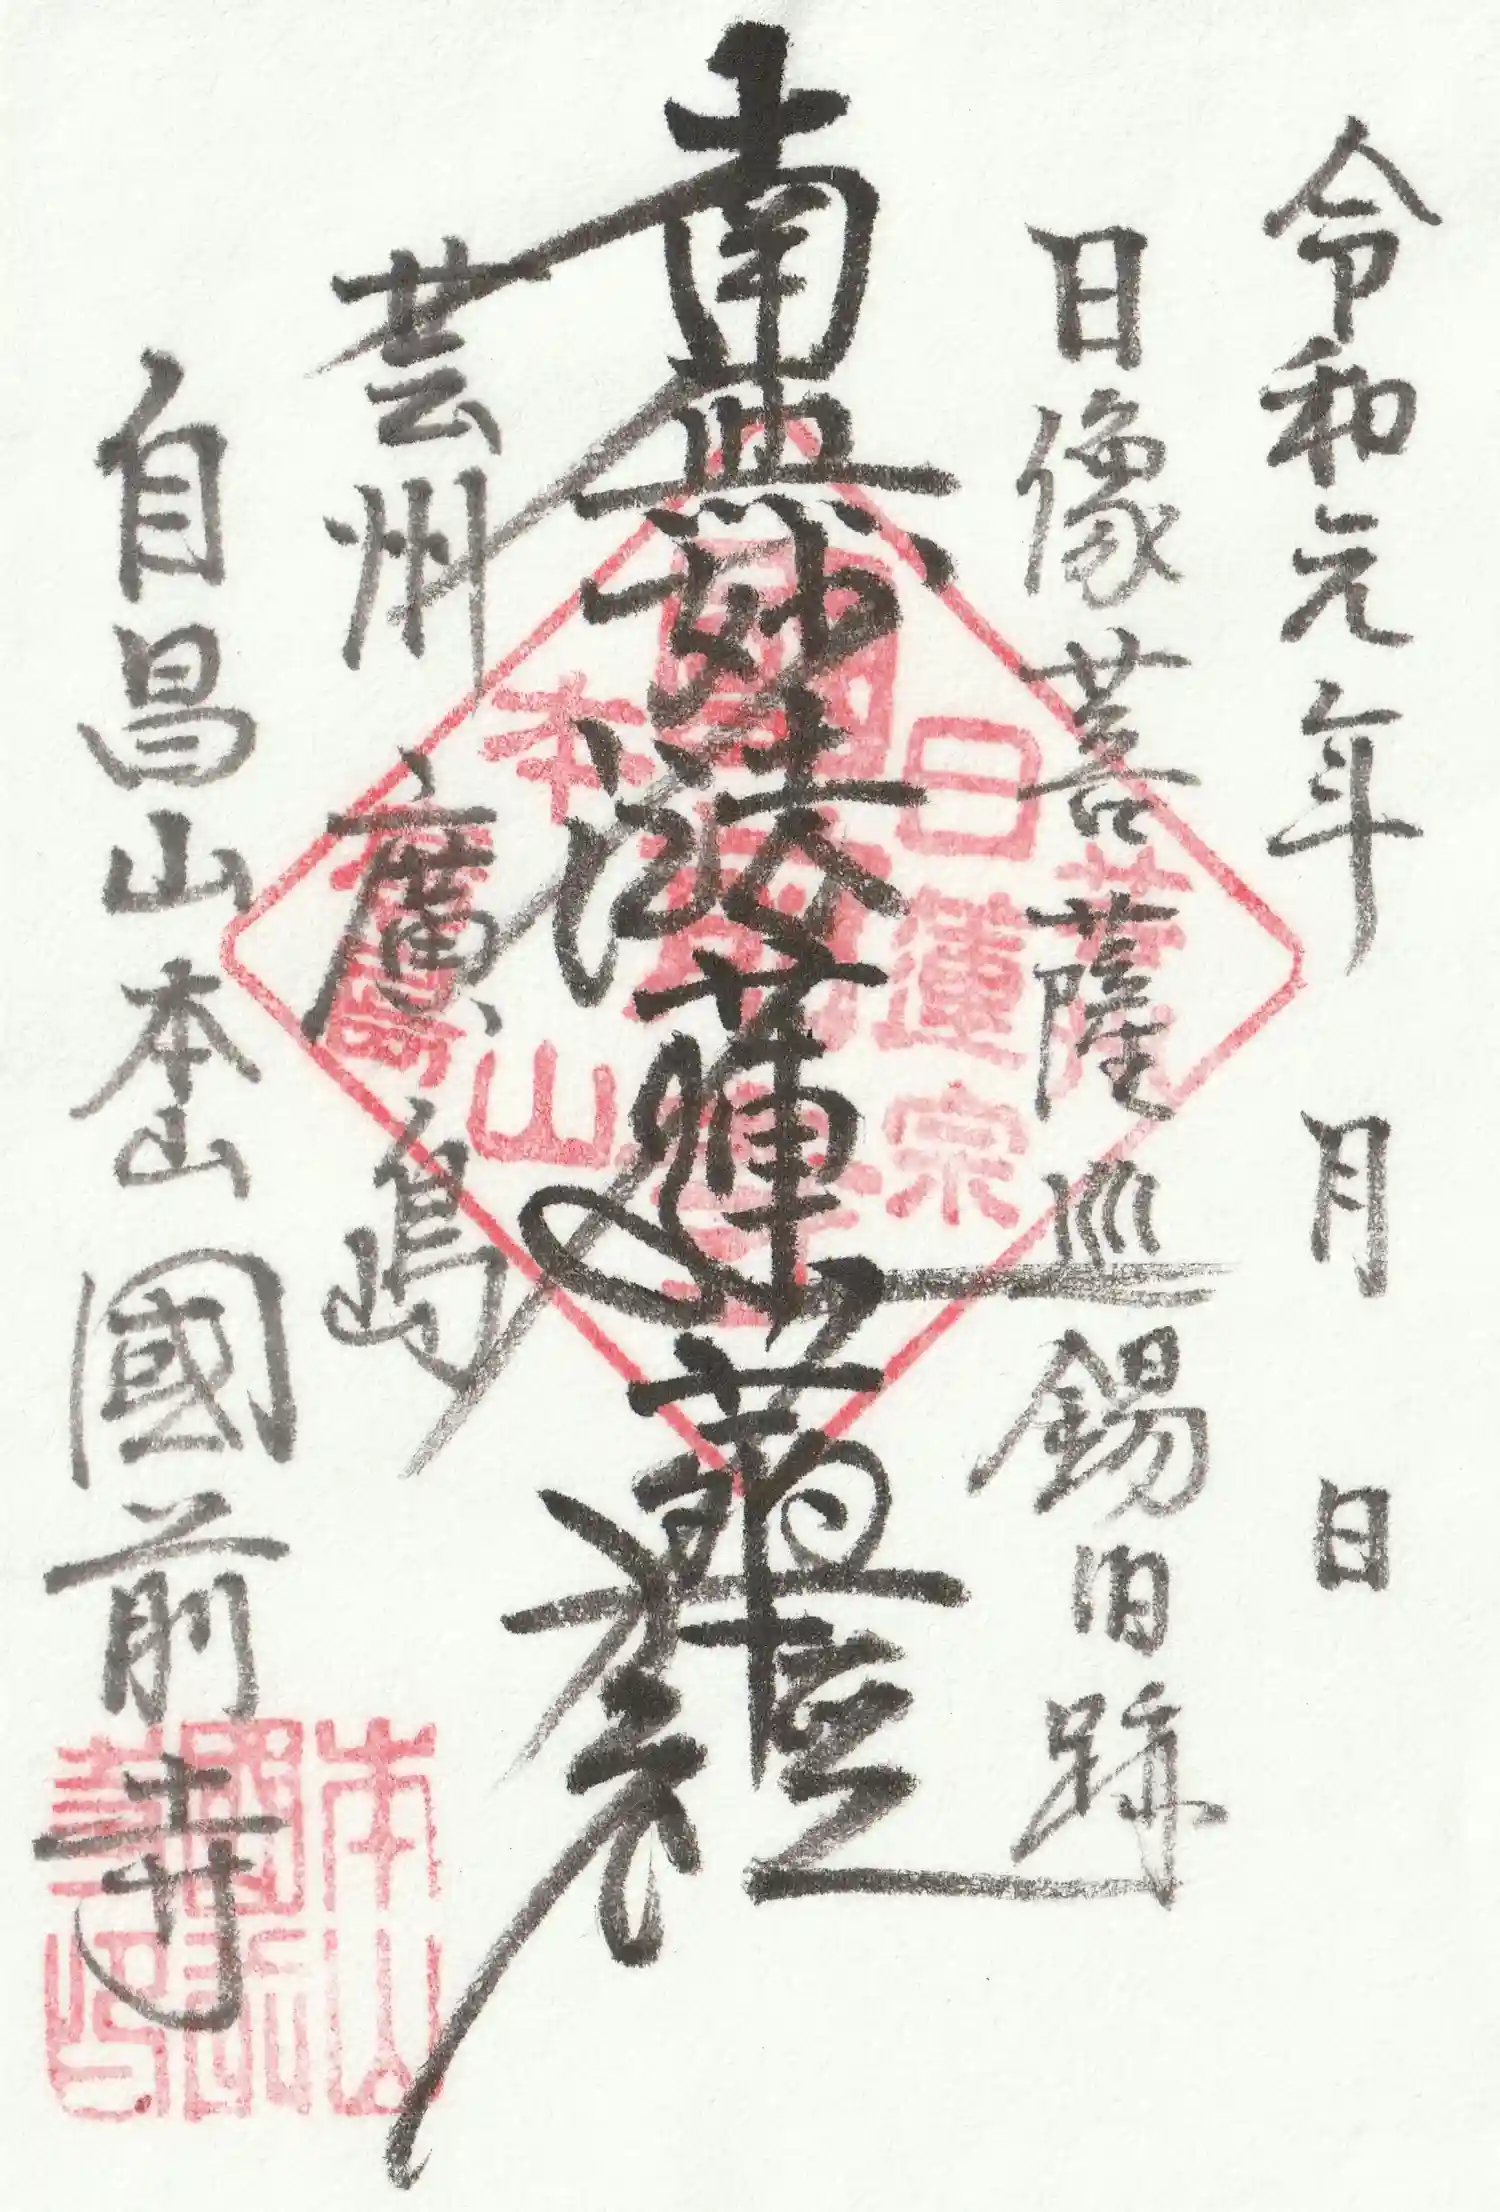 令和元年 月 日
日像菩薩巡錫旧跡
南無妙法蓮華経
芸州 廣嶋
自昌山本山國前寺
日蓮宗
本山
廣嶋